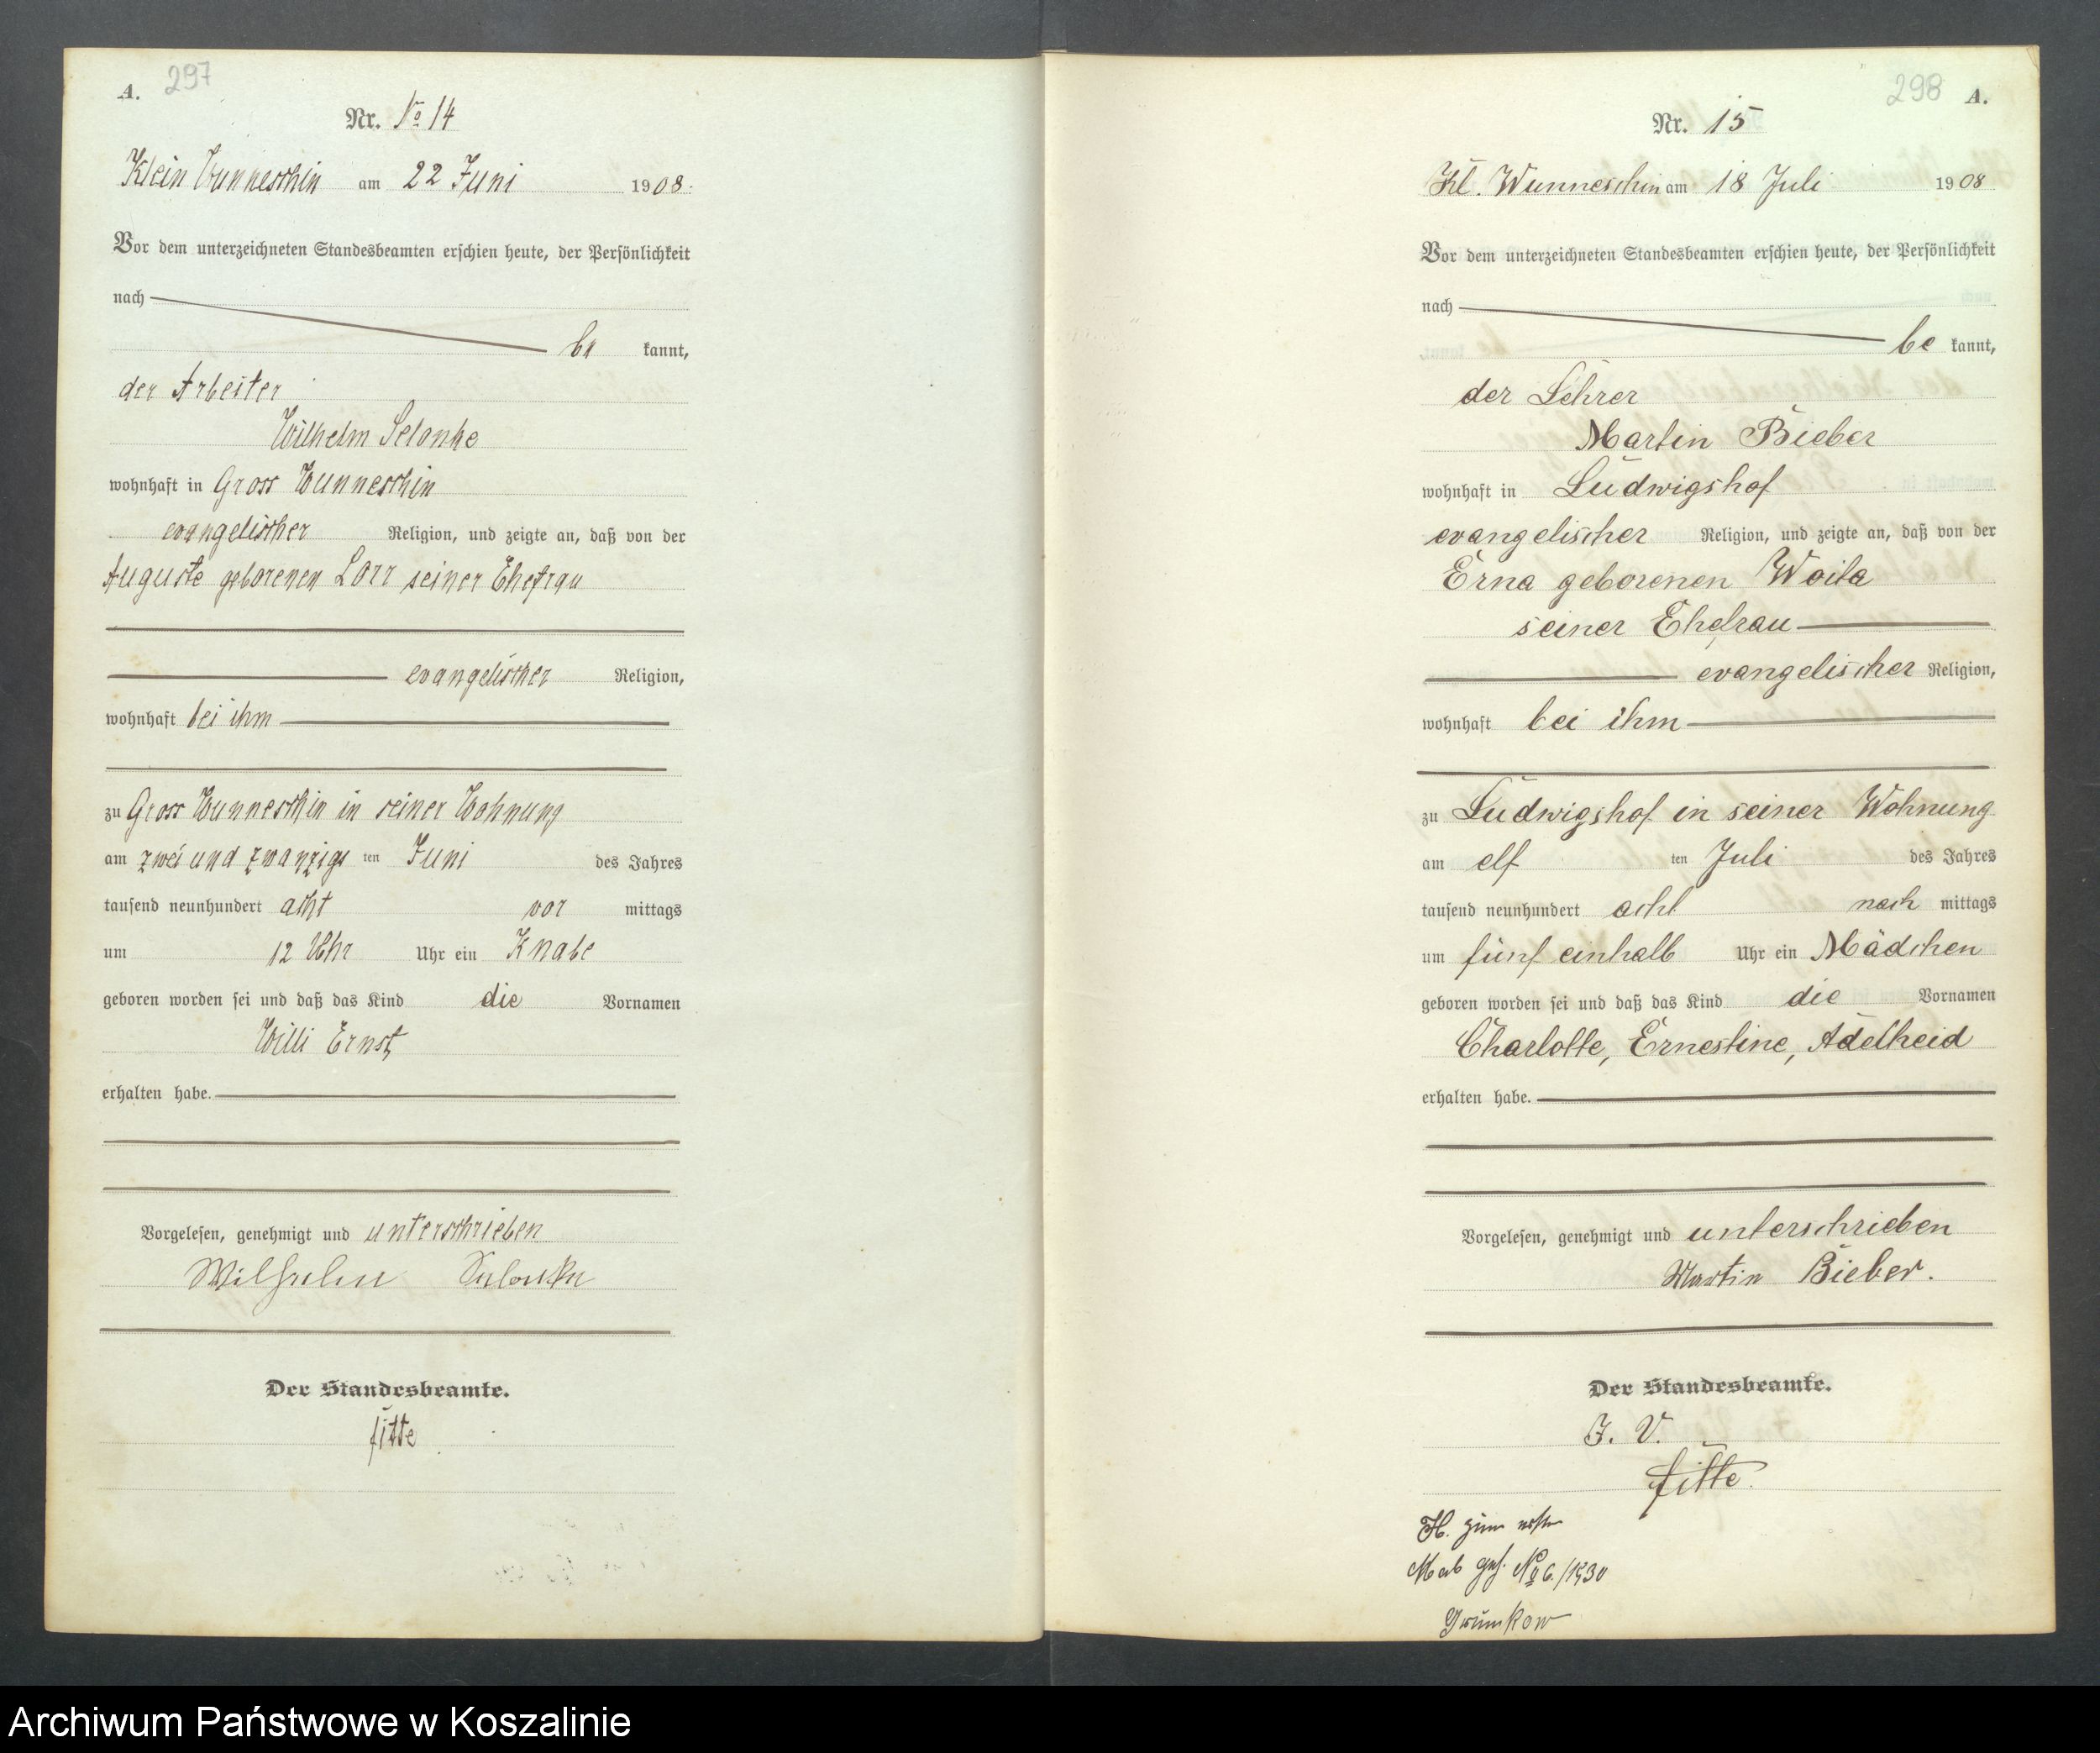 A. 297
Nr. No 14
Klein Wunneschin am 22 Juni 1908.
Vor dem unterzeichneten Standesbeamten erschien heute, der Persönlichkeit
nach
be kannt,
der Arbeiter
Wilhelm Selonke
wohnhaft in Gross Wunneschin
evangelischer Religion, und zeigte an, daß von der
Auguste geborenen Lorr seiner Ehefrau
evangelischer Religion,
wohnhaft bei ihm
zu Gross Wunneschin in seiner Wohnung
am zwei und zwanzigs ten Juni des Jahres
tausend neunhundert acht vor mittags
um 12 Uhr Uhr ein Knabe
geboren worden sei und daß das Kind die Vornamen
Willi Ernst
erhalten habe.
Vorgelesen, genehmigt und unterschrieben
Wilhelm Selonke
Der Standesbeamte.
fitte
298 A.
Nr. 15
Kl. Wunneschin am 18 Juli 1908
Vor dem unterzeichneten Standesbeamten erschien heute, der Persönlichkeit
nach
be kannt,
der Lehrer
Martin Bieber
wohnhaft in Ludwigshof
evangelischer Religion, und zeigte an, daß von der
Erna geborenen Woita
seiner Ehefrau
evangelischer Religion,
wohnhaft bei ihm
zu Ludwigshof in seiner Wohnung
am elf ten Juli des Jahres
tausend neunhundert acht nach mittags
um fünf einhalb Uhr ein Mädchen
geboren worden sei und daß das Kind die Vornamen
Charlotte, Ernestine, Adelheid
erhalten habe.
Vorgelesen, genehmigt und unterschrieben
Martin Bieber.
Der Standesbeamte.
J. V.
fitte.
H. zum
No 6./1930
Grumkow
Archiwum Państwowe w Koszalinie